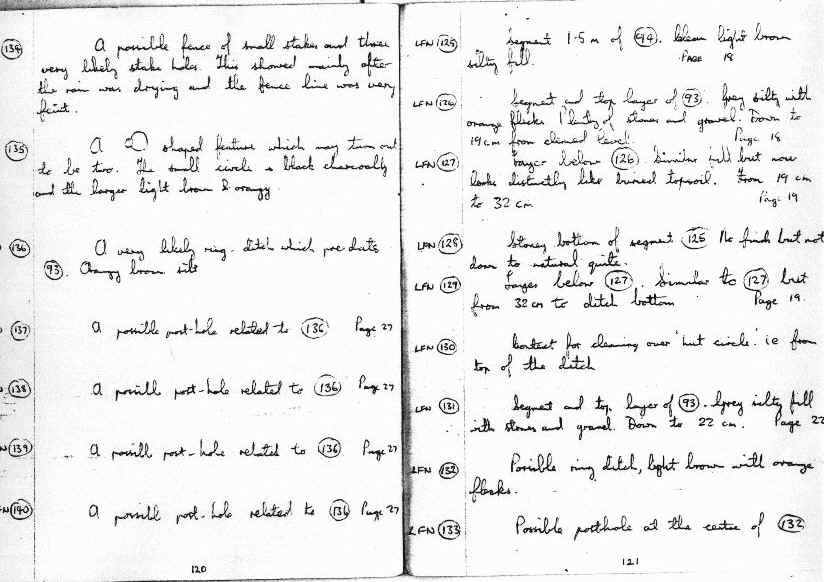 (134) A possible fence of small stakes and three
very likely stake holes. This showed mainly after
the rain was drying and the fence line was very
faint.
(135) A shaped feature which may turn out
to be two. The small circle is black charcoally
and the larger light brown & orangy
(136) A very likely ring-ditch which pre-dates
(93). Orangy brown silt
(137) A possible post-hole related to (136) Page 27
(138) A possible post-hole related to (136) Page 27
N (139) A possible post-hole related to (136) Page 27
FN (140) A possible post-hole related to (136) Page 27
120
LFN (125) Segment 1.5 m of (94). Clean light brown
silty fill. PAGE 18
LFN (126) Segment and top layer of (93). Grey silty with
orange flecks Plenty of stones and gravel. Down to
19 cm from cleaned level. Page 18
LFN (127) Layer below (126). Similar fill but now
looks distinctly like buried topsoil. From 19 cm
to 32 cm Page 19
LFN (128) Stoney bottom of segment (125) No finds but not
down to natural quite.
LFN (129) Layer below (127). Similar to (127) but
from 32 cm to ditch bottom Page 19.
LFN (130) Context for cleaning over 'hut circle' ie from
top of the ditch
LFN (131) Segment and top layer of (93). Grey silty fill
with stones and gravel. Down to 22 cm. Page 22
LFN (132) Possible ring ditch, light brown with orange
flecks.
LFN (133) Possible posthole at the centre of (132)
121